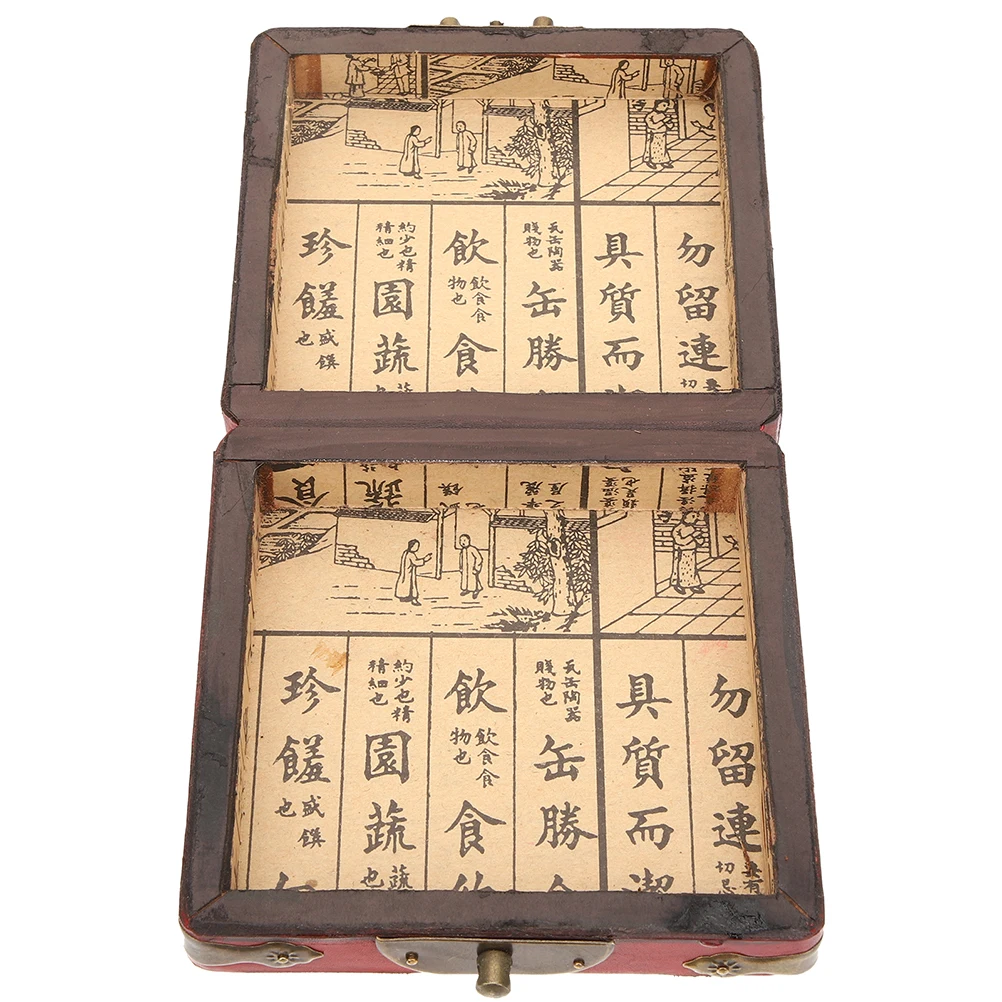 勿留連
具質而
瓦缶陶器
賤物也
缶勝
飲
飲食食
物也
食
約少也精
精細也
園蔬
珍饈
盛饌
也
勿留連
切忌
具質而潔
瓦缶陶器
賤物也
缶勝
飲
飲食食
物也
食
約少也精
精細也
園蔬
蔬
也
珍饈
盛饌
也